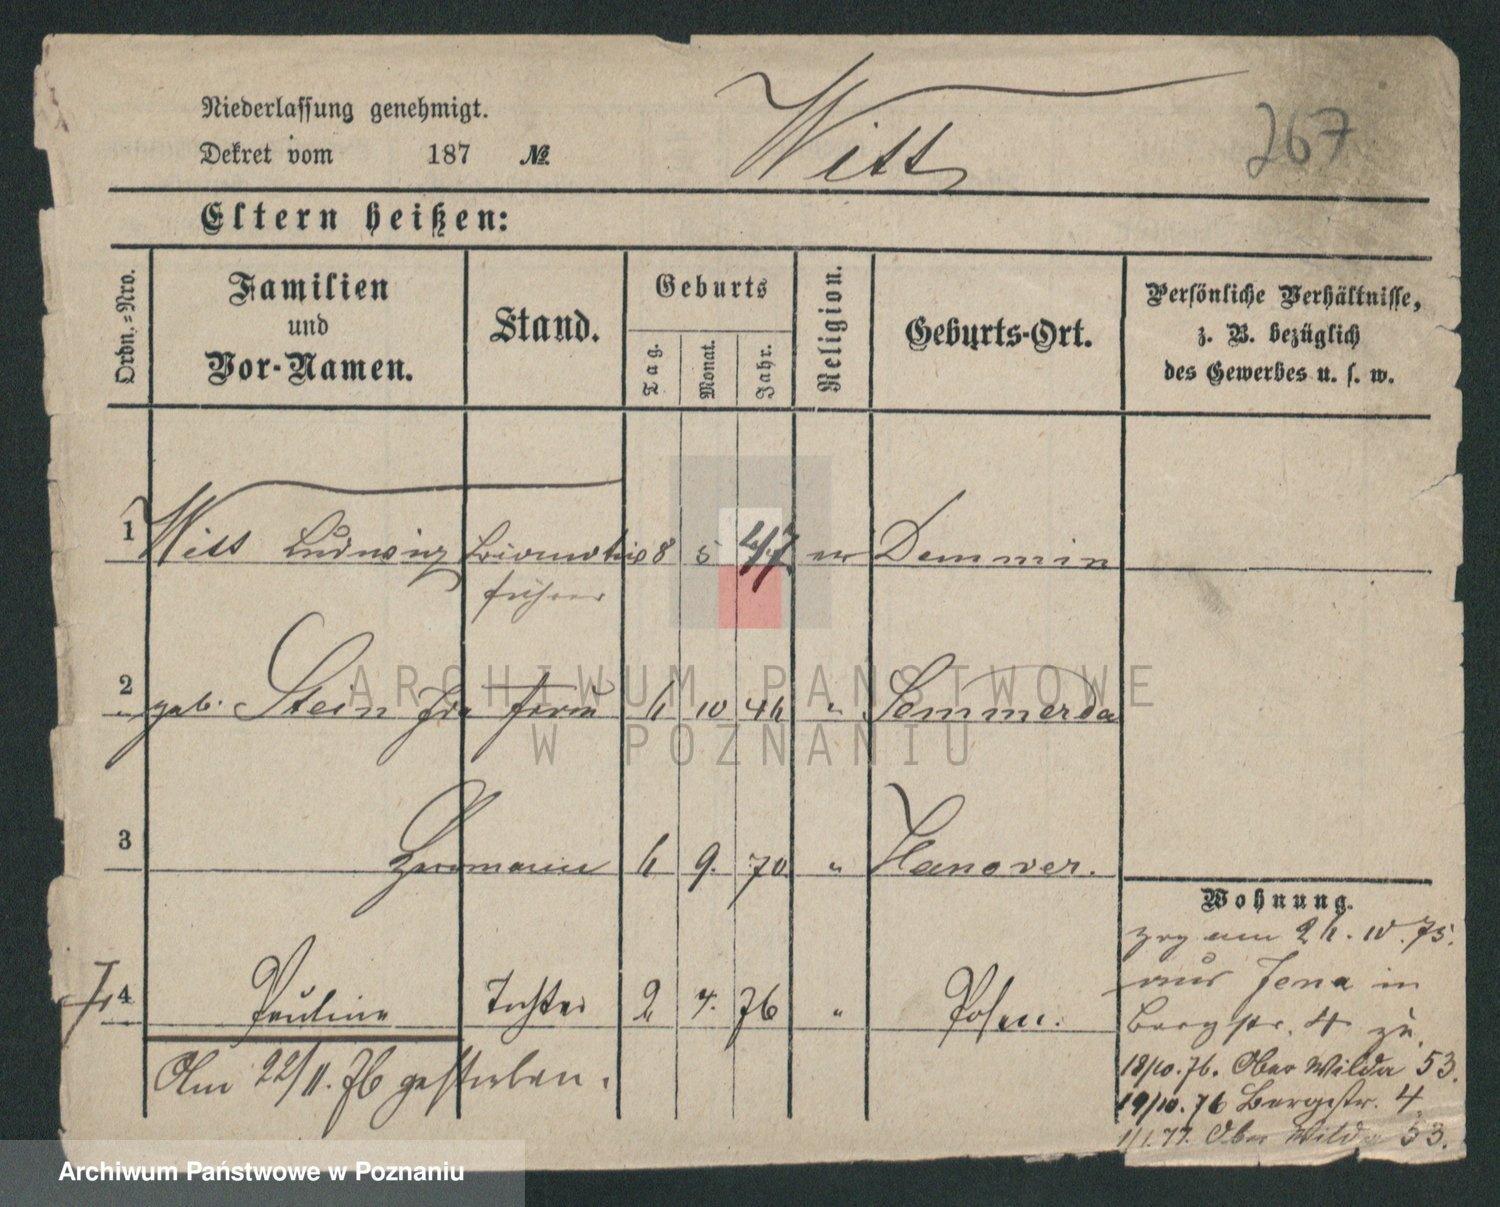 Niederlassung genehmigt.
Dekret vom 187 №
Witt
267
Eltern heißen:
Ordn.-Nro.
Familien
und
Vor-Namen.
Stand.
Geburts
Tag.
Monat.
Jahr.
Religion.
Geburts-Ort.
Persönliche Verhältnisse,
z. B. bezüglich
des Gewerbes u. s. w.
1 Witt Ludwig 8 5 47 ev Demmin
führer
2 geb. Stein Frau 6 10 46 " Sömmerda
3 Hermann 6 9. 70 " Hanover.
4 Pauline Tochter 2 4. 76 " Posen.
Am 22/11. 76 gestorben.
Wohnung.
zog am 26. 10. 75.
aus Jena in
Bergstr. 4 zu.
18/10. 76. Ober Wilda 53.
19/10. 76 Bergstr. 4.
1/1. 77. Ober Wilda 53.
ARCHIWUM PAŃSTWOWE
W POZNANIU
Archiwum Państwowe w Poznaniu